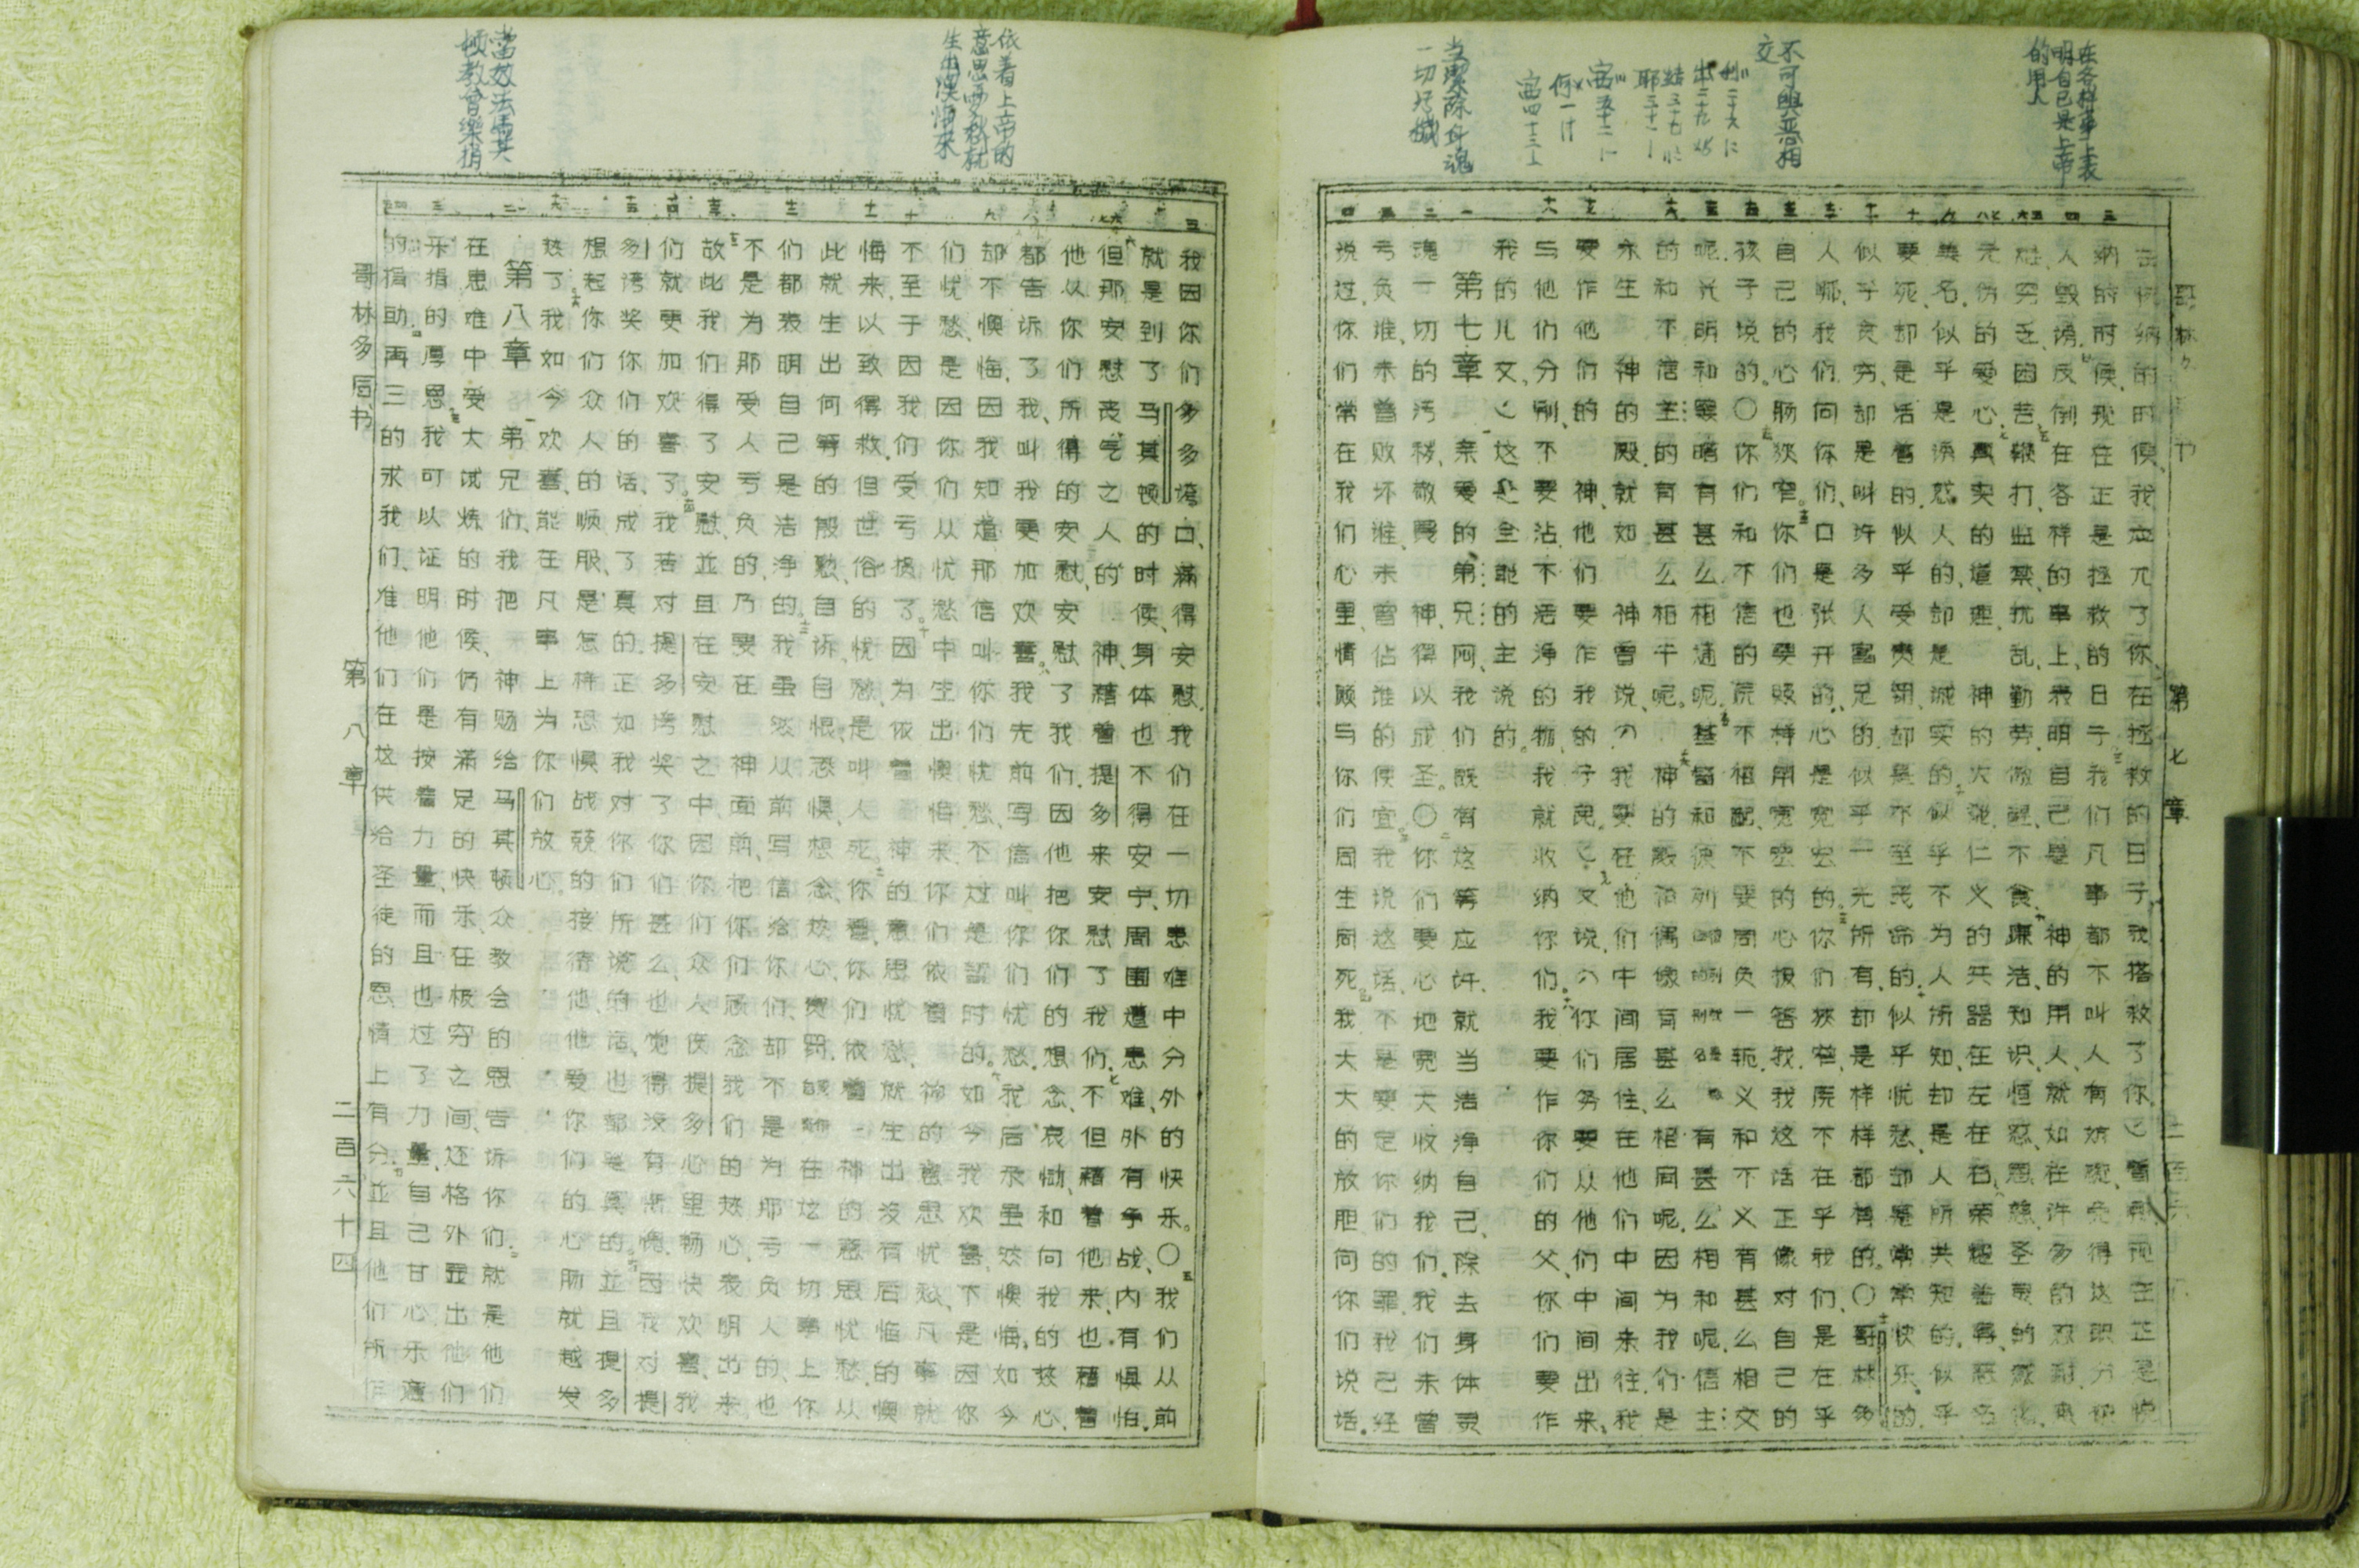 在各样事上表
明自己是上帝
的用人
不可與恶相
交
当潔除身魂
一切污衊
哥林多后书　第七章
去悦纳的时候、我应允了你、在拯救的日子、我搭救了你、看哪、现在正是悦
纳的时候、现在正是拯救的日子。我们凡事都不叫人有妨碍、免得这职分被
人毁谤、反倒在各样的事上、表明自己是　神的用人、就如在许多的忍耐、患
难、穷乏、困苦、鞭打、监禁、扰乱、勤劳、儆醒、不食、廉洁、知识、恒忍、恩慈、圣灵的感化、
无伪的爱心、真实的道理、　神的大能、仁义的兵器在左在右、荣耀羞辱、恶名
美名、似乎是诱惑人的、却是诚实的、似乎不为人所知、却是人所共知的、似乎
要死、却是活着的、似乎受责罚、却是不至丧命的、似乎忧愁、却是常常快乐的、
似乎贫穷、却是叫许多人富足的、似乎一无所有、却是样样都有的。〇哥林多
人哪、我们向你们、口是张开的、心是宽宏的。你们狭窄、原不在乎我们、是在乎
自己的心肠狭窄。你们也要照样用宽宏的心报答我、我这话正像对自己的
孩子说的。〇你们和不信的原不相配、不要同负一轭、义和不义有甚么相交
呢、光明和黑暗有甚么相通呢。基督和彼列有甚么相和呢、信主
的和不信主的有甚么相干呢。　神的殿和偶像有甚么相同呢、因为我们是
永生　神的殿、就如　神曾说、我要在他们中间居住、在他们中间来往、我
要作他们的　神、他们要作我的子民。又说、你们务要从他们中间出来、
与他们分别、不要沾不洁净的物、我就收纳你们。我要作你们的父、你们要作
我的儿女、这是全能的主说的。
第七章　亲爱的弟兄阿、我们既有这等应许、就当洁净自己、除去身体灵
魂一切的污秽、敬畏　神、得以成圣。〇你们要心地宽大收纳我们、我们未曾
亏负谁、未曾败坏谁、未曾佔谁的便宜。我说这话、不是要定你们的罪、我已经
说过、你们常在我们心里、情愿与你们同生同死。我大大的放胆向你们说话。
依着上帝的
意思忧愁就
生出懊悔来
當效法馬其
顿教會樂捐
我因你们多多夸口、满得安慰、我们在一切患难中分外的快乐。〇我们从前
就是到了马其顿的时候、身体也不得安宁、周围遭患难、外有争战、内有惧怕。
但那安慰丧气之人的　神、藉着提多来安慰了我们、不但藉着他来、也藉着
他从你们所得的安慰、安慰了我们、因他把你们的想念、哀恸、和向我的热心、
都告诉了我、叫我更加欢喜。我先前写信叫你们忧愁、我后来虽然懊悔、如今
却不懊悔、因我知道那信叫你们忧愁、不过是暂时的。如今我欢喜、不是因你
们忧愁、是因你们从忧愁中生出懊悔来、你们依着　神的意思忧愁、凡事就
不至于因我们受亏损了。因为依着　神的意思忧愁、就生出没有后悔的懊
悔来、以致得救、但世俗的忧愁、是叫人死。你看、你们依着　神的意思忧愁、从
此就生出何等的殷勤、自诉、自恨、恐惧、想念、热心、责罚、在这一切事上你
们都表明自己是洁净的。我虽然从前写信给你们、却不是为那亏负人的、也
不是为那受人亏负的、乃要在　神面前、把你们顾念我们的热心、表明出来。
故此我们得了安慰、並且在安慰之中、因你们众人使提多心里畅快欢喜、我
们就更加欢喜了。我若对提多夸奖了你们甚么、也觉得没有惭愧、因我对提
多夸奖你们的话、成了真的、正如我对你们所说的话、也都是真的。並且提多
想起你们众人的顺服、是怎样恐惧战兢的接待他、他爱你们的心肠就越发
热了。我如今欢喜、能在凡事上为你们放心。
第八章　弟兄们、我把　神赐给马其顿众教会的恩告诉你们、就是他们
在患难中受大试炼的时候、仍有满足的快乐、在极穷之间、还格外显出他们
乐捐的厚恩。我可以证明他们是按着力量、而且也过了力量、自己甘心乐意
的捐助、再三的求我们、准他们在这供给圣徒的恩情上有分。並且他们所作
哥林多后书　第八章　二百六十四